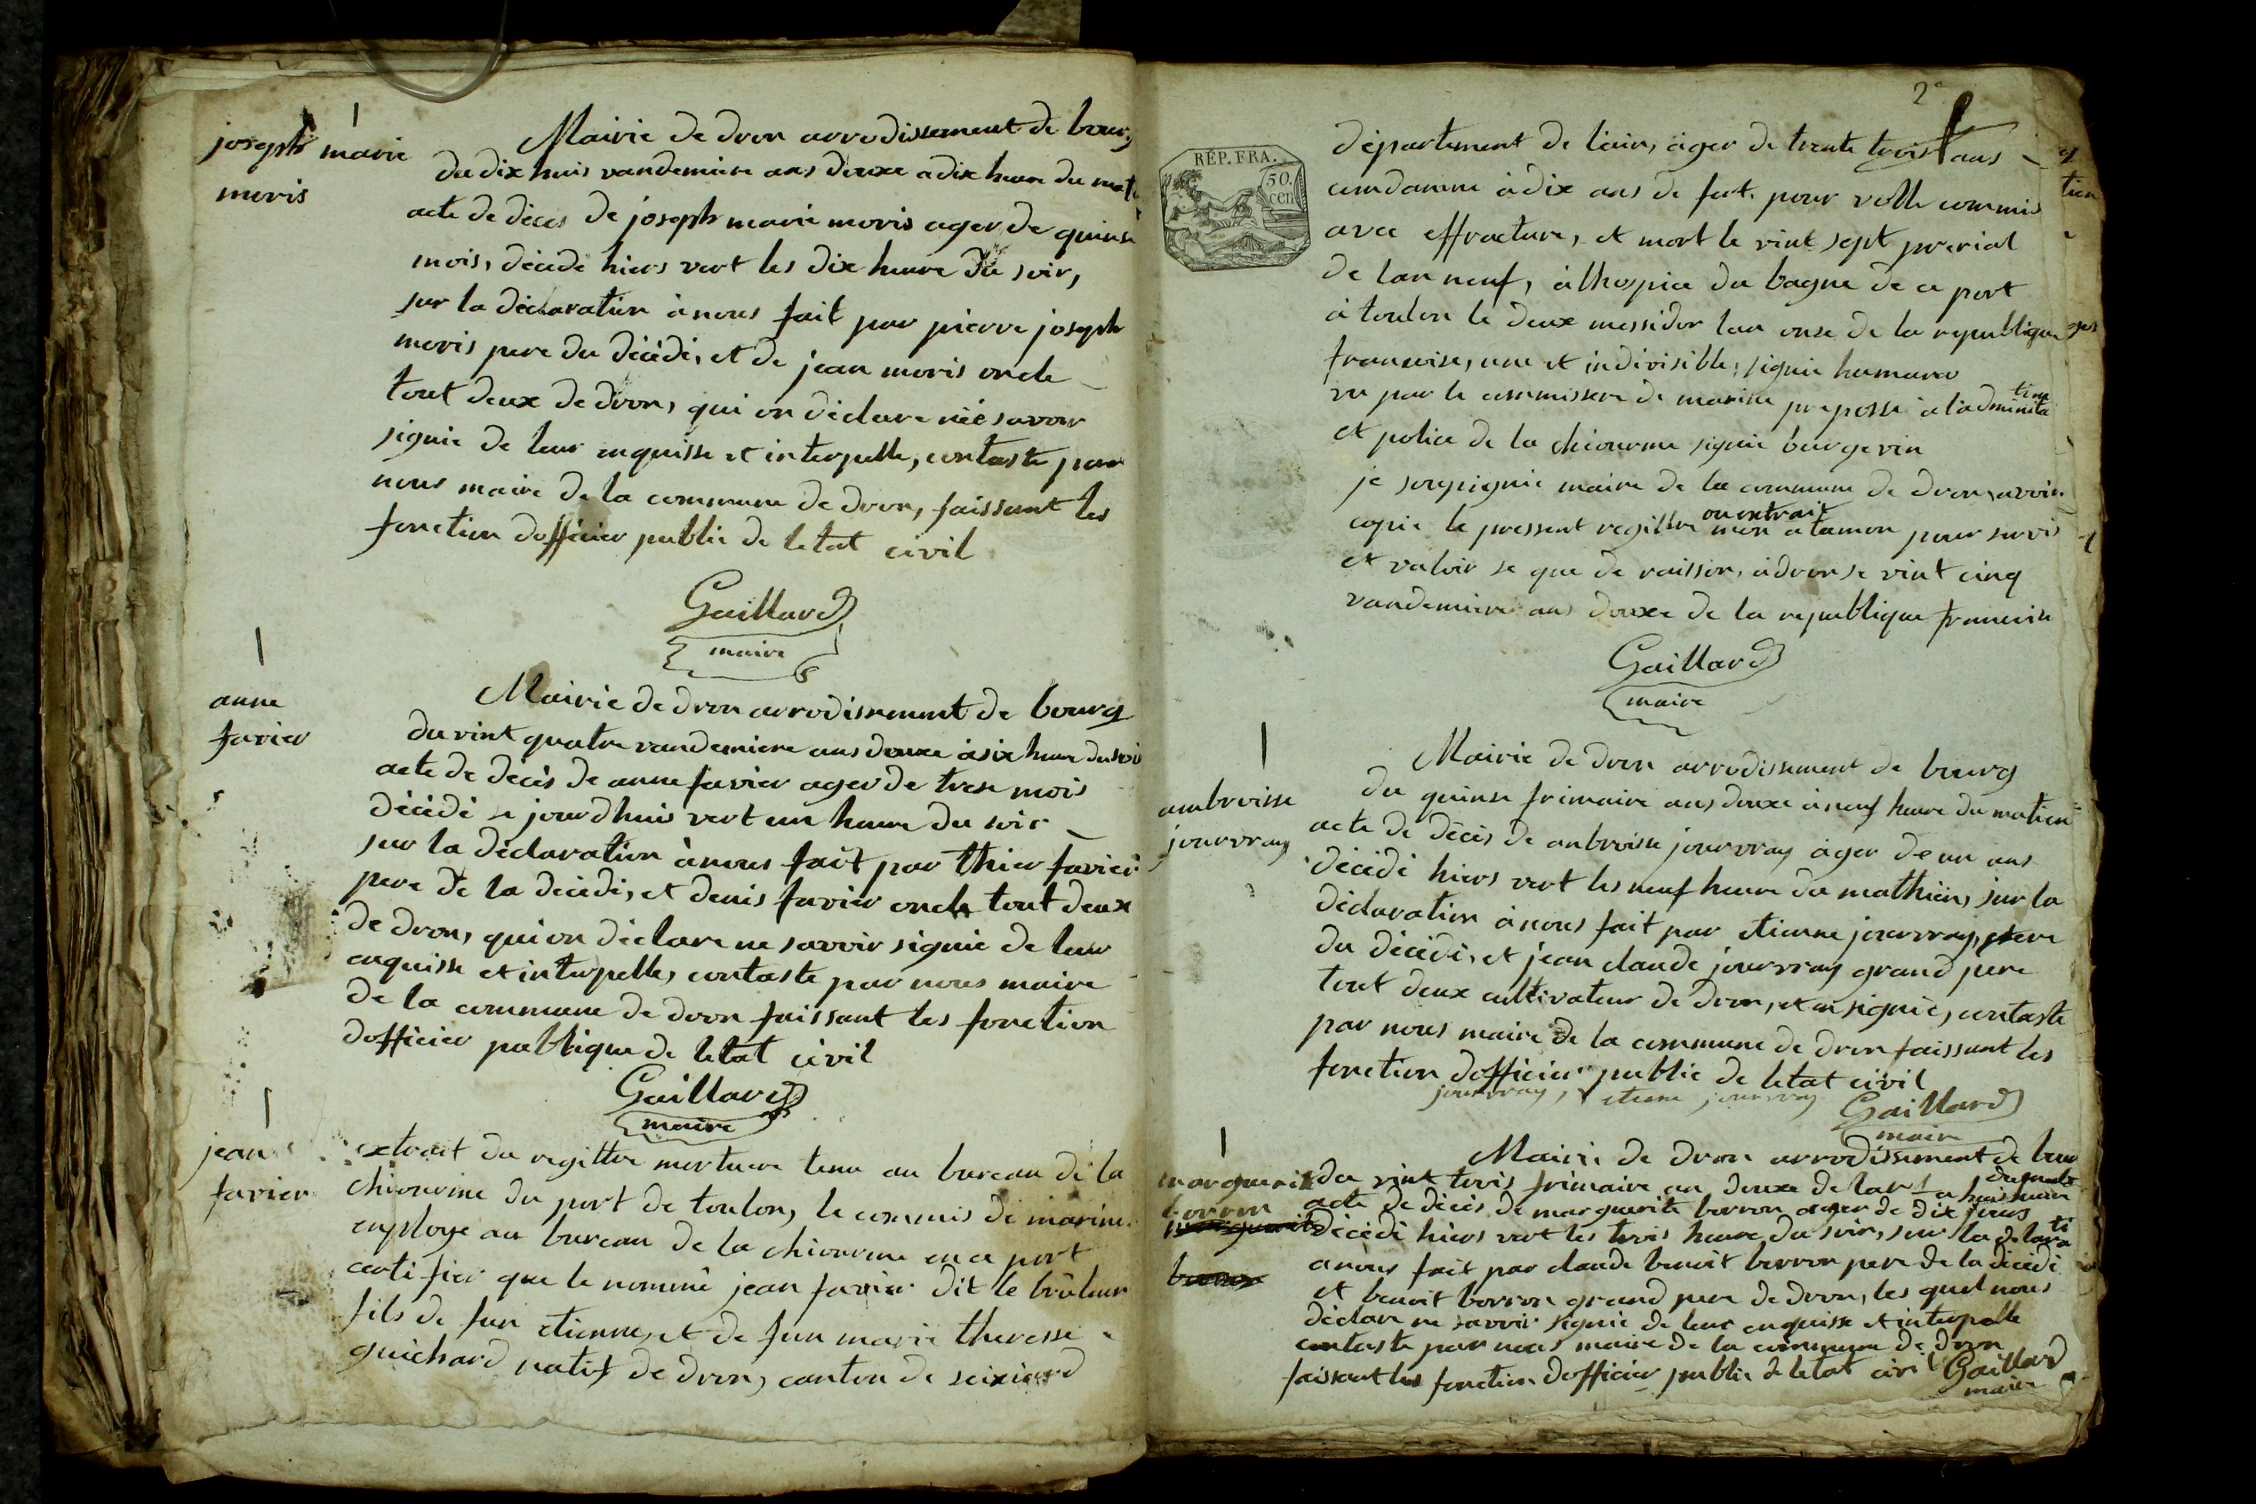 joseph marie
moris
Mairie de dron arrodissement de bourg
du dix huis vandemiere ans douxe a dix heure du mat
acte de déces de joseph marie moris ager de quinse
mois, décédé hiers vert les dix heure du soir,
sur la déclaration à nous fait par pierre joseph
moris pere du décédé, et de jean moris oncle
tout deux de dron, qui on déclare né savoir
signié de leur enquisse et interpelle, contaste par
nous maire de la commune de dron, faissant les
fonction dofficier public de letat civil
Gaillard
maire
anne
favier
Mairie de dron arrodissement de bourg
du vint quatre vandemiere ans douxe à six heure du soir
acte de décès de anne favier ager de trese mois
décédé se jourdhuis vert un heure du soir
sur la déclaration à nous fait par thier favier
pere de la décédé, et denis favier oncle tout deux
de dron, qui on déclare ne savoir signié de leur
enquisse et interpelle, contaste par nous maire
de la commune de dron faissant les fonction
dofficier publique de letat civil
Gaillard
maire
jean
favier
extrait du regittre mortuere tenu au bureau de la
chiourme du port de toulon, le commis de marine
employe au bureau de la chiourme en ce port
certifier que le nommé jean favier dit le brûleur
fils de fun etienne, et de fun marie theresse
guichard natif de dron, canton de seixierd
2e
RÉP. FRA.
50.
cen
département de lain, âger de trente trois ans
condamne à dix ans de fert pour volle commis
avec effracture, et mort le vint sept prerial
de lan neuf, à lhospice du bagne de ce port
à toulon le deux messidor lan onse de la republique
francoise, une et indivisible, signié humara
vu par le commissere de marine preposse à ladminita
tion
et police de la chiourme signié burgevin
je sousignié maire de la commune de dron, avoir
copié le pressent regittre mon atamon pour servis
ou extrait
et valoir se que de raisson, à dron se vint cinq
vandemiere ans douxe de la republique francoise
Gaillard
maire
ambroisse
jourvray
Mairie de dron arrodissement de bourg
du quinse frimaire ans douxe à neuf heure du matien
acte de décès de anbroisse jourvray àger de un ans
décédé hiers vert les neuf heure du mathien, sur la
déclaration à nous fait par etienne jourvray, pere
du décédé, et jean claude jourvray grand pere
tout deux cultivateur de dron, et on signié, contaste
par nous maire de la commune de dron faissant les
fonction dofficier public de letat civil
jourvray, etiene jourvray Gaillard
maire
marguerite
borron
borron
Mairie de dron arrodissement de bour
du vint trois frimaire an douxe de lar
acte de décès de marguerite borron ager de dix jours
décédé hiers vert les trois heure du soir, sur la delara
ti
a nous fait par claude benoit borron pere de la décédé
et benoit borron grand pere de dron, les quel nous
déclare ne savoir signié de leur enquisse et interpelle
contaste par nous maire de la commune de dron
faissant les fonction dofficier public de letat civil Gaillard
maire